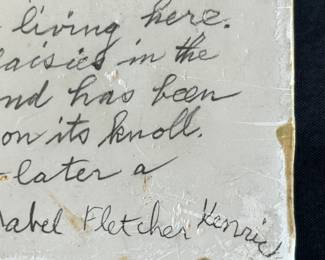 living here.
daisies in the
and has been
on its knoll.
-later a
Mabel Fletcher Kenrick